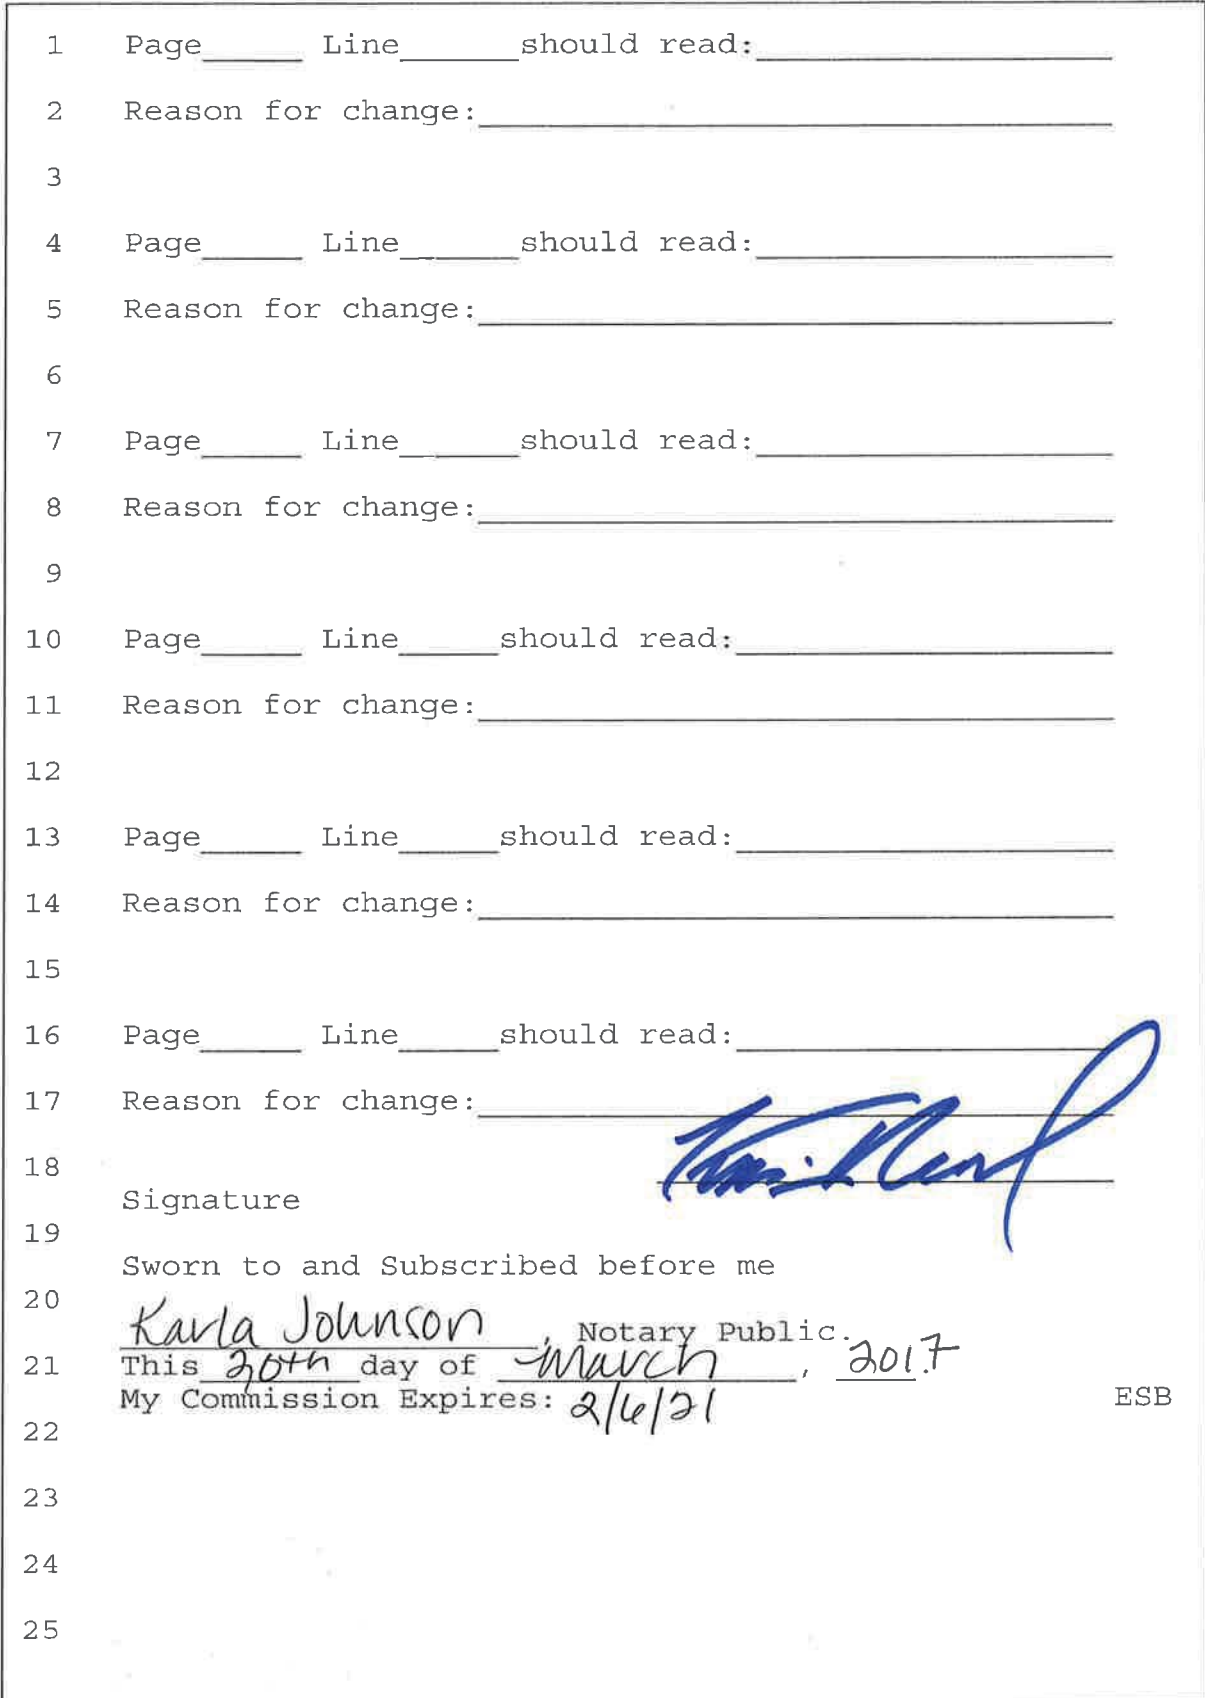 1 Page_____ Line______should read:__________________
2 Reason for change:________________________________
3
4 Page_____ Line______should read:__________________
5 Reason for change:________________________________
6
7 Page_____ Line______should read:__________________
8 Reason for change:________________________________
9
10 Page_____ Line_____should read:___________________
11 Reason for change:________________________________
12
13 Page_____ Line_____should read:___________________
14 Reason for change:________________________________
15
16 Page_____ Line_____should read:___________________
17 Reason for change:________________________________
18
Signature
19
Sworn to and Subscribed before me
20
Karla Johnson, Notary Public.
21 This 20th day of March, 2017.
My Commission Expires: 2/6/21 ESB
22
23
24
25